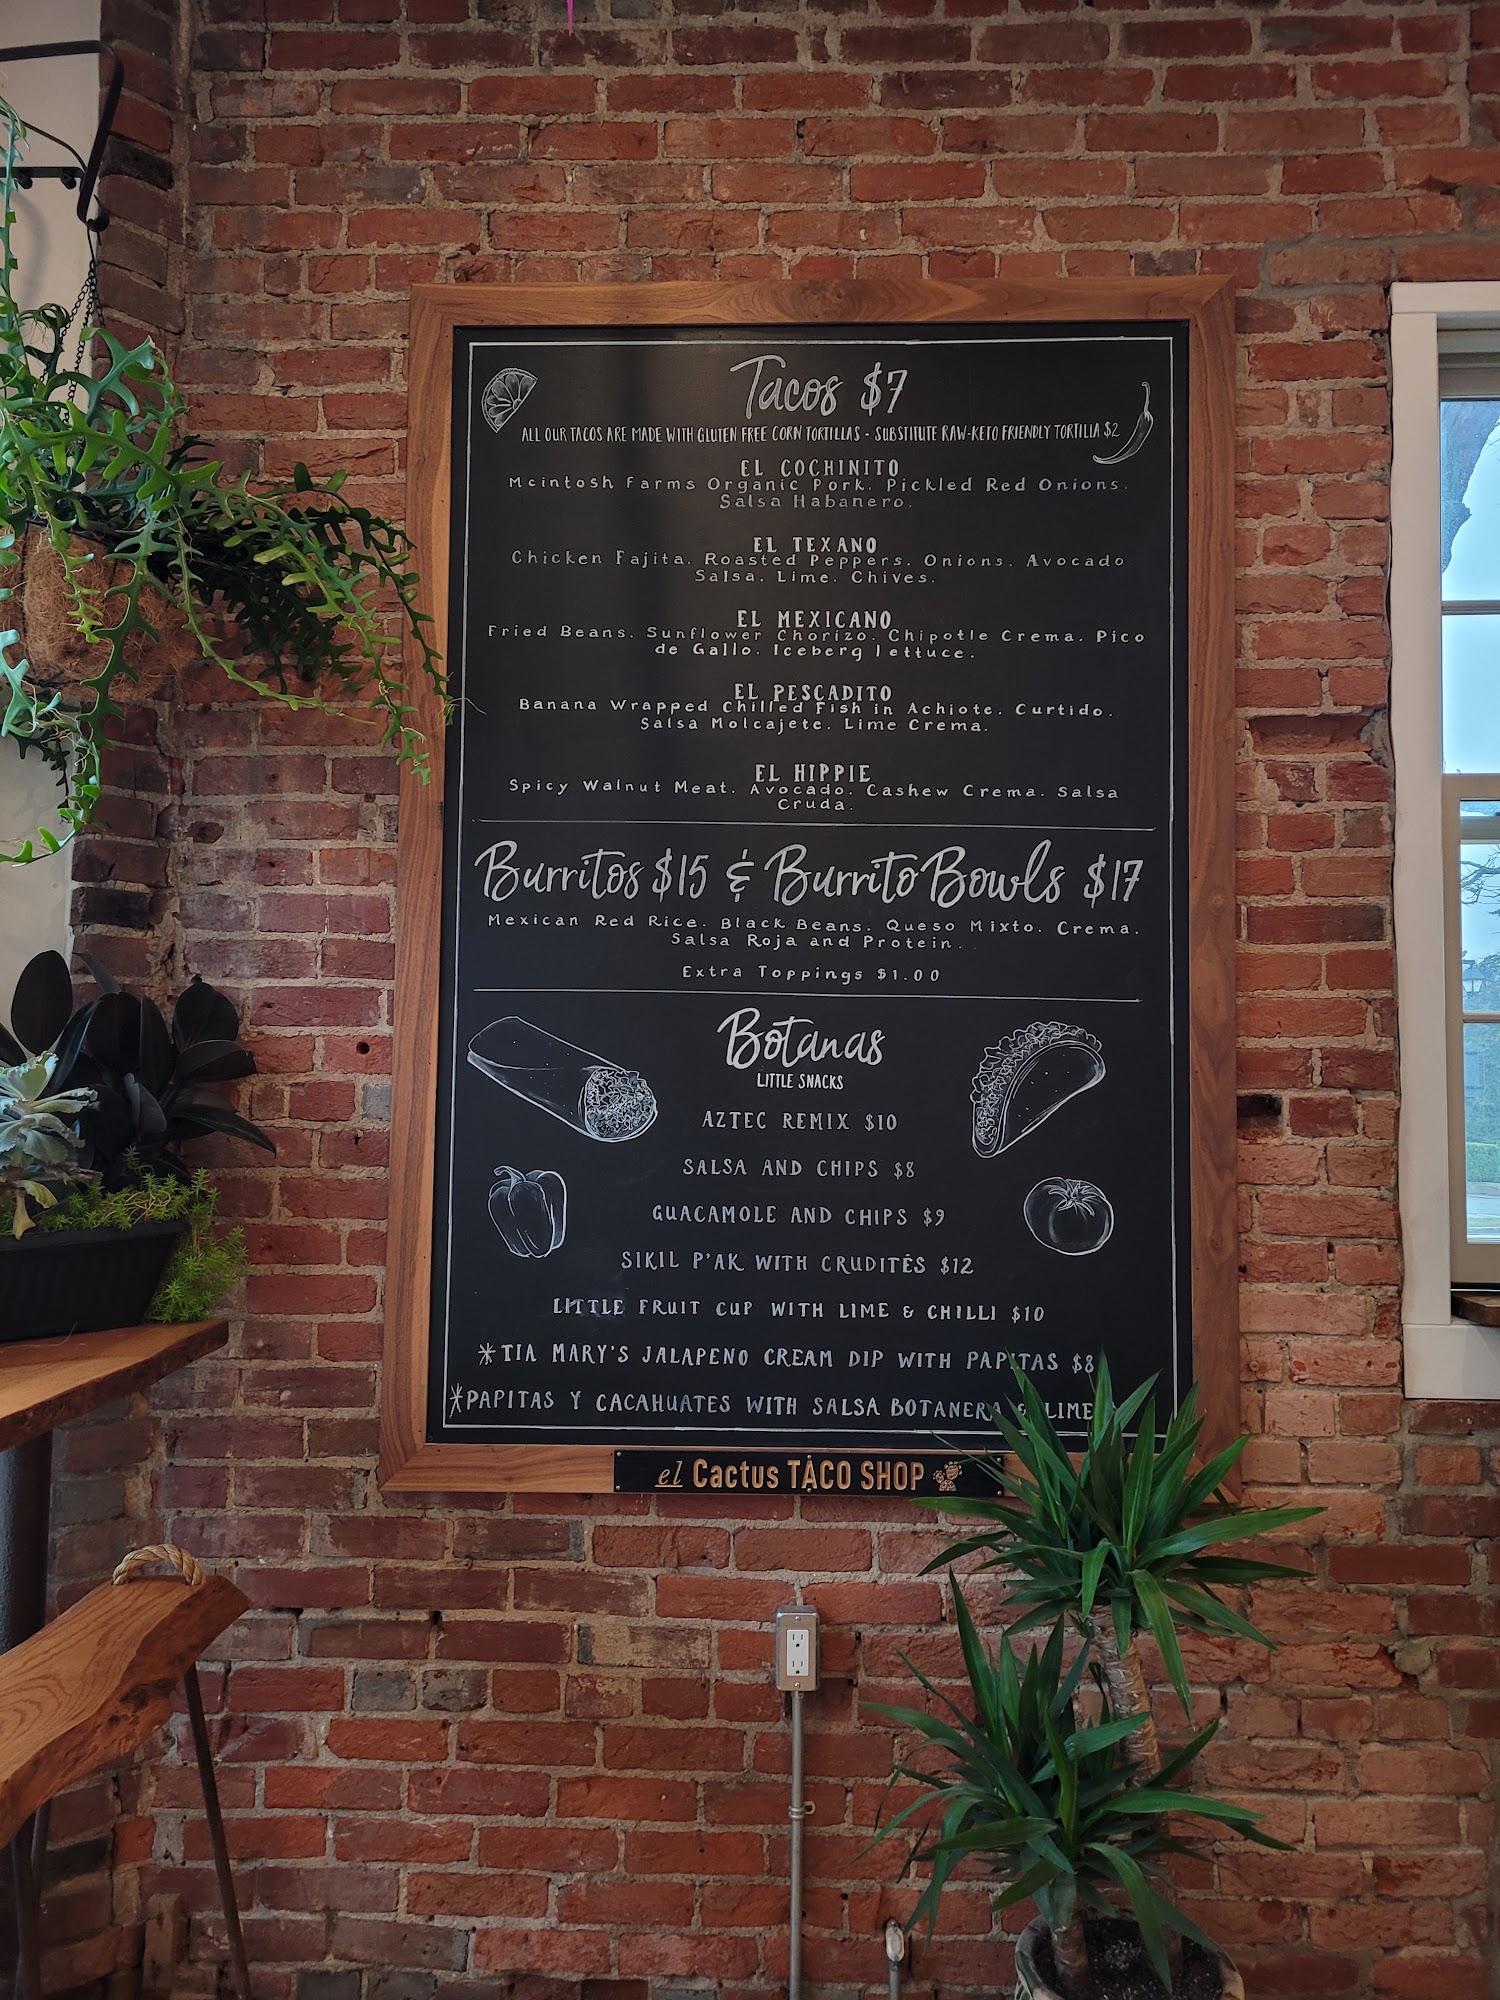 Tacos $7
ALL OUR TACOS ARE MADE WITH GLUTEN FREE CORN TORTILLAS - SUBSTITUTE RAW-KETO FRIENDLY TORTILLA $2
EL COCHINITO
Mcintosh Farms Organic Pork. Pickled Red Onions.
Salsa Habanero.
EL TEXANO
Chicken Fajita. Roasted Peppers. Onions. Avocado
Salsa. Lime. Chives.
EL MEXICANO
Fried Beans. Sunflower Chorizo. Chipotle Crema. Pico
de Gallo. Iceberg lettuce.
EL PESCADITO
Banana Wrapped Chilled Fish in Achiote. Curtido.
Salsa Molcajete. Lime Crema.
EL HIPPIE
Spicy Walnut Meat. Avocado. Cashew Crema. Salsa
Cruda.
Burritos $15 & Burrito Bowls $17
Mexican Red Rice. Black Beans. Queso Mixto. Crema.
Salsa Roja and Protein.
Extra Toppings $1.00
Botanas
LITTLE SNACKS
AZTEC REMIX $10
SALSA AND CHIPS $8
GUACAMOLE AND CHIPS $9
SIKIL P'AK WITH CRUDITÉS $12
LITTLE FRUIT CUP WITH LIME & CHILLI $10
*TIA MARY'S JALAPENO CREAM DIP WITH PAPITAS $8
*PAPITAS Y CACAHUATES WITH SALSA BOTANERA & LIME
el Cactus TACO SHOP